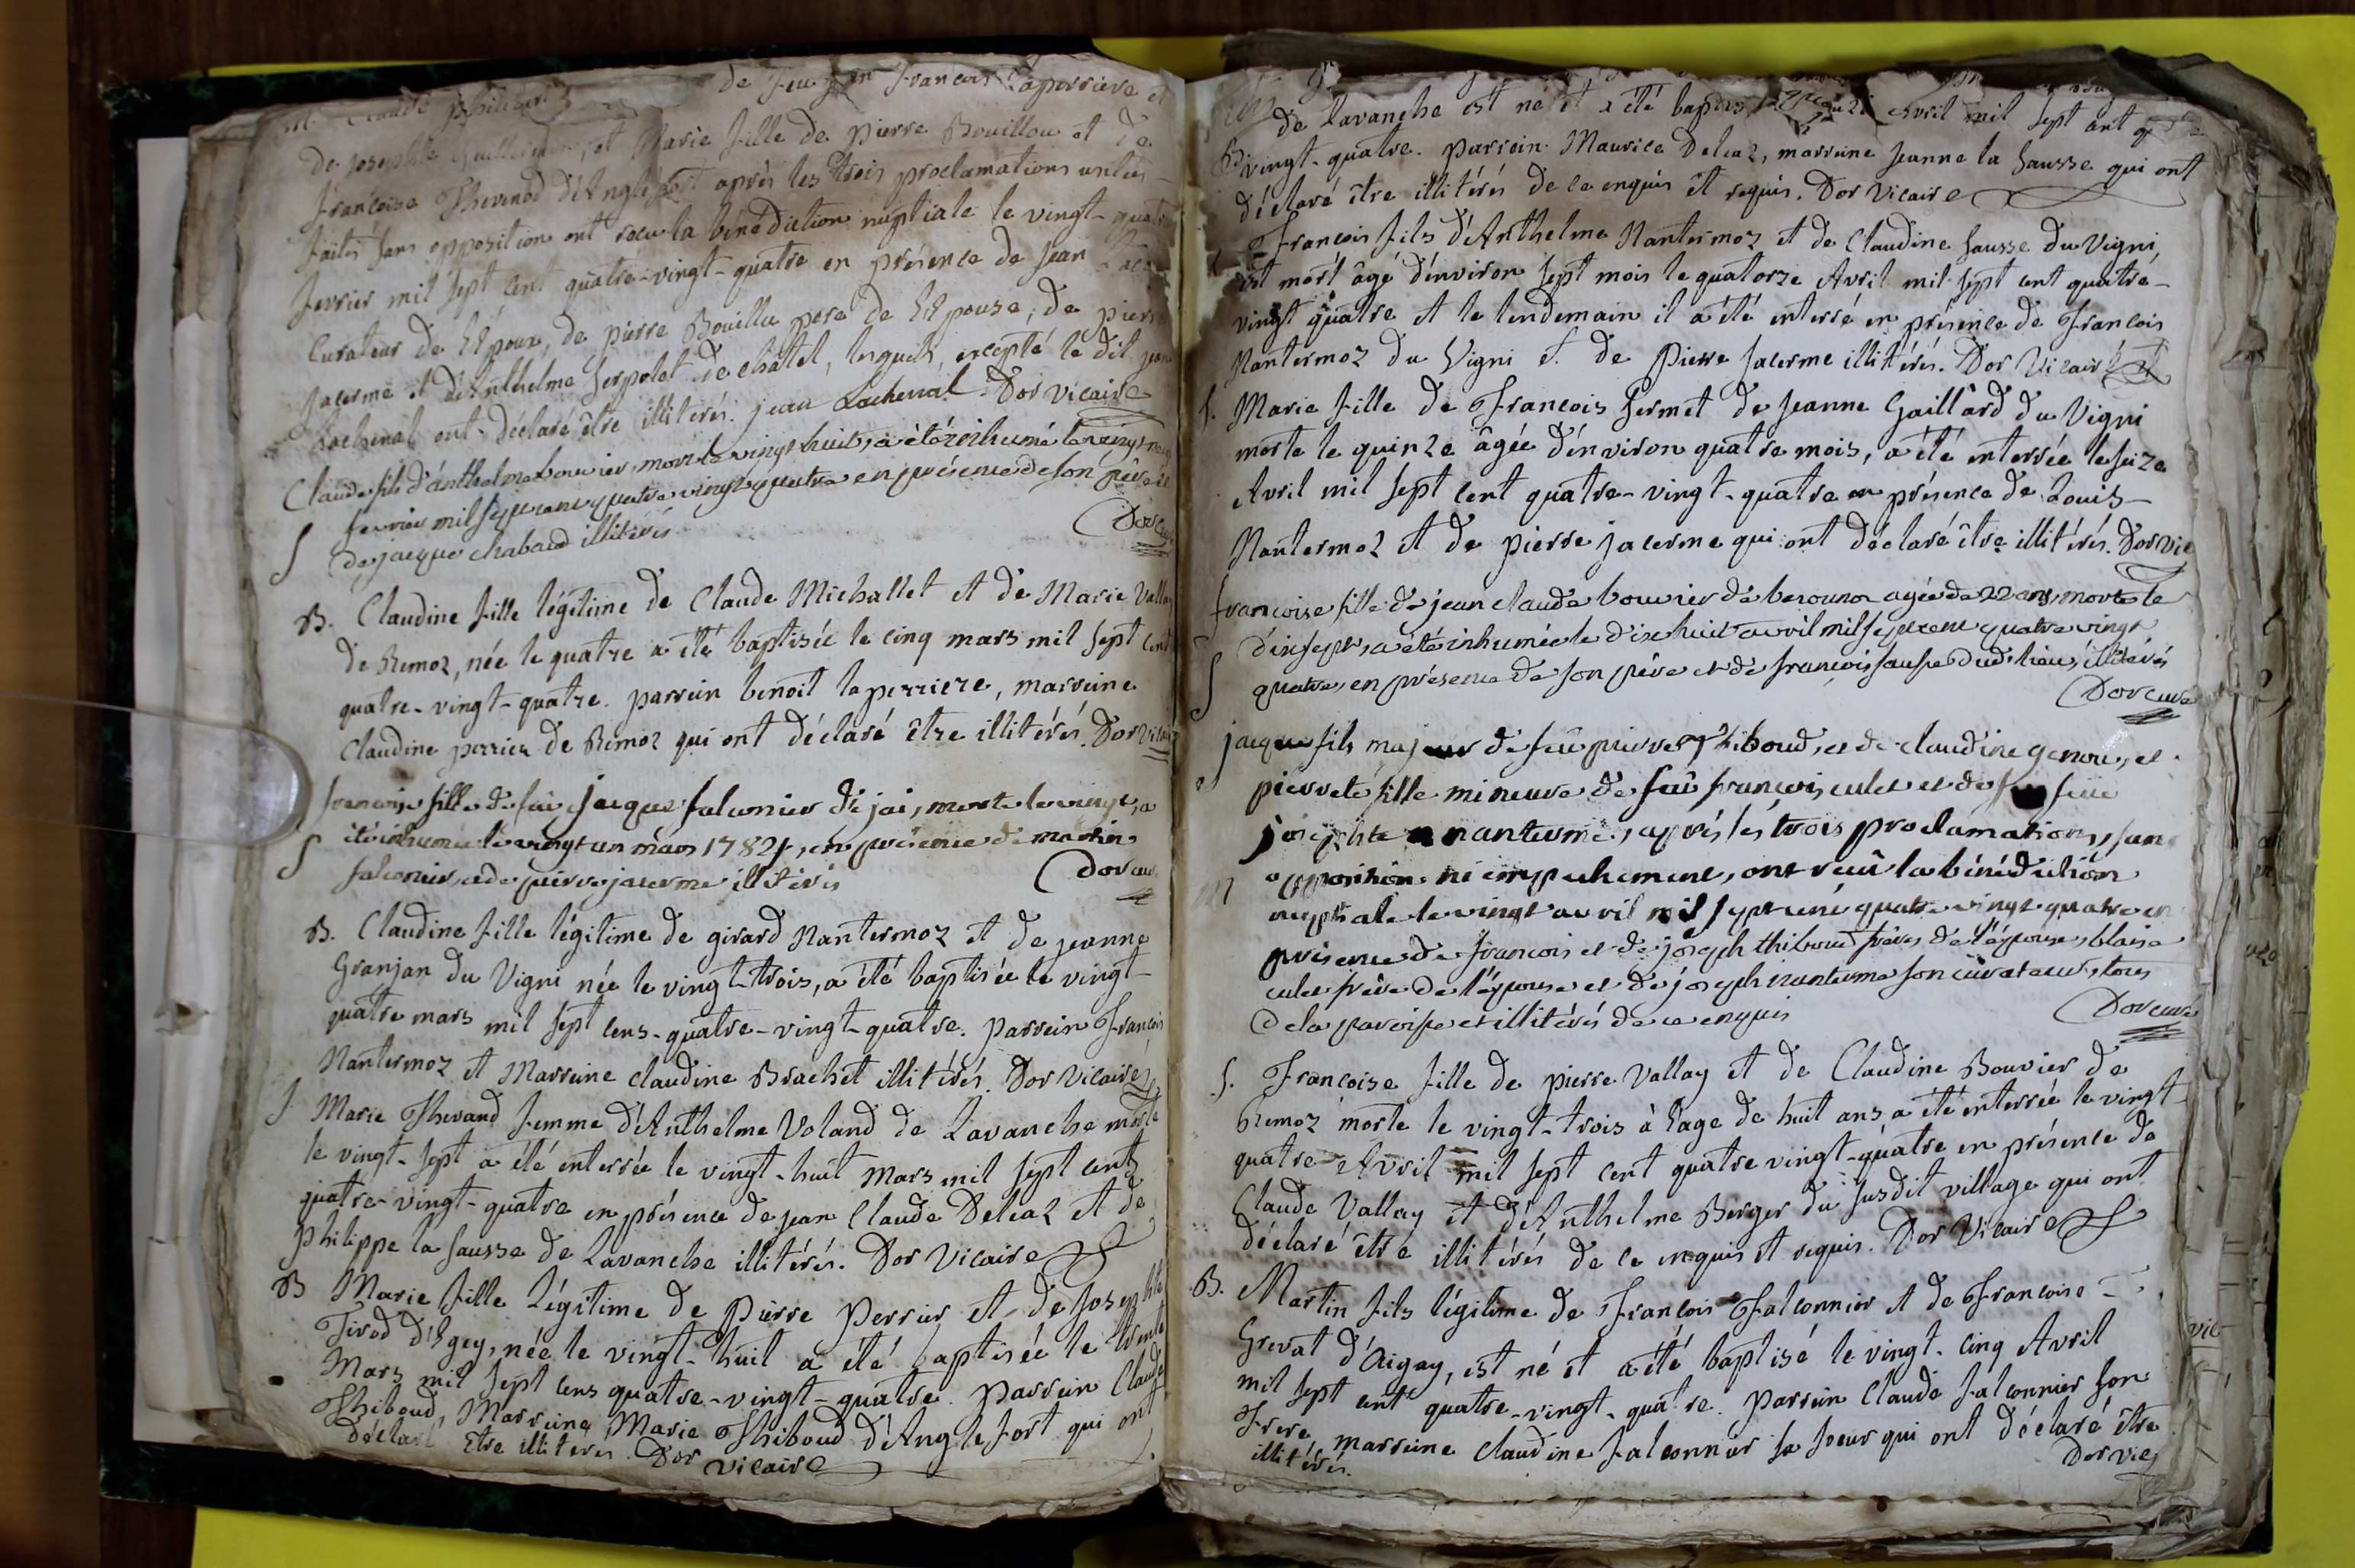 de feu jn François Laperriere et
de Josephte Guillermin, et Marie fille de pierre Bouillou et de
françoise Thevenod d'Anglefort après les trois proclamations usitées
faites sans opposition ont recu la bénédiction nuptiale le vingt-quatre
fevrier mil sept cent quatre-vingt-quatre en présence de jean
Curateur de l'Epoux, de pierre Bouillu pere de l'Epouse, de pierre
jacerme et d'Anthelme Serpolet de châtel, lesquels, excepté le dit jean
Lachenal ont déclaré être illitérés. jean Lachenal Dor vicaire
Claude fils d'anthelme bouvier, mort le vingt huit, a été inhumé le vingt neuf
S fevrier mil sept cent quatre vingt quatre en présence de son père et
de jacque chabaud illitérés Dor curé
B. Claudine fille légitime de Claude Michallet et de Marie Vallay
de Remoz, née le quatre a été baptisée le cinq mars mil sept cent
quatre-vingt-quatre. parrein benoit laperriere, marreine
Claudine perrier de Remoz qui ont déclaré être illitérés. Dor vicaire
françoise fille de feu jacque falconier de jai, morte le vingt, a
S été inhumée le vingt un mars 1784, en présence de martin
falconier, et de pierre jacerme illitérés Dor curé
B. Claudine fille légitime de girard Nantermoz et de jeanne
Granjan du Vigni née le vingt-trois, a été baptisée le vingt-
quatre mars mil sept cens-quatre-vingt-quatre. parrein François
Nantermoz et Marreine claudine Brachet illitérés. Dor Vicaire
S Marie Thevand femme d'Anthelme Voland de Lavanche morte
le vingt-sept a été enterrée le vingt-huit Mars mil sept cents
quatre-vingt-quatre en présence de jean Claude Deleaz et de
philippe la sausse de Lavanche illitérés. Dor Vicaire
B Marie fille Légitime de Pierre Perrier et de Josephte
Tirod d'Egey, née le vingt-huit a été baptisée le trente
Mars mil sept cens quatre-vingt-quatre. Parrein Claude
Thiboud, Marreine Marie Thiboud d'Anglefort qui ont
déclaré être illiteres. Dor vicaire
de Lavanche est né et a été baptisé avril mil sept cent
vingt-quatre. parrein Maurice Deleaz, marreine jeanne la sausse qui ont
déclaré être illitérés de ce enquis et requis. Dor Vicaire
François fils d'Anthelme Nantermoz et de Claudine sausse du Vigni,
est mort âgé d'environ sept mois le quatorze Avril mil-sept cent quatre-
vingt quatre et le lendemain il a été enterré en présence de François
Nantermoz du Vigni et de Pierre jacerme illitérés. Dor Vicaire
S. Marie fille de François fermet de jeanne Gaillard du Vigni
morte le quinze âgée d'environ quatre mois, a été enterrée le seize
Avril mil sept cent quatre-vingt-quatre en présence de Louis-
Nantermoz et de pierre jacerme qui ont déclaré être illitérés. Dor vic
françoise fille de jean claude bouvier de agée de 22 ans, morte le
S dixsept, a été inhumée le dixhuit avril mil sept cent quatre vingt
quatre, en présence de son père et de françois sausse dud. lieu, illitérés
Dor curé
jacque fils majeur de feû pierre Thiboud, et de claudine genou, et
pierrete fille mineure de feû françois culet et de feüe
josephte nanterme, après les trois proclamations, sans
m opposition ni empechement, ont reçu la bénédiction
nuptiale le vingt avril mil sept cent quatre vingt quatre en
présence de francois et de joseph thiboud frères de l'époux, blaise
culet frère de l'épouse et de joseph nanterme son curateur, tous
de la paroisse et illitérés de ce enquis Dor curé
S. Françoise fille de pierre Vallay et de Claudine Bouvier de
Remoz morte le vingt-trois à l'age de huit ans a été enterrée le vingt-
quatre Avril mil sept cent quatre vingt-quatre en présence de
Claude Vallay et d'Anthelme Berger du susdit village qui ont
déclaré être illitérés de ce enquis et requis. Dor Vicaire
B. Martin fils légitime de François Falconnier et de Françoise
Grevat d'Aigay, est né et a été baptisé le vingt-cinq Avril
mil sept cent quatre-vingt-quatre. Parrein Claude falconnier son
Frere, marreine Claudine falconnier sa soeur qui ont déclaré être
illitérés. Dor vic